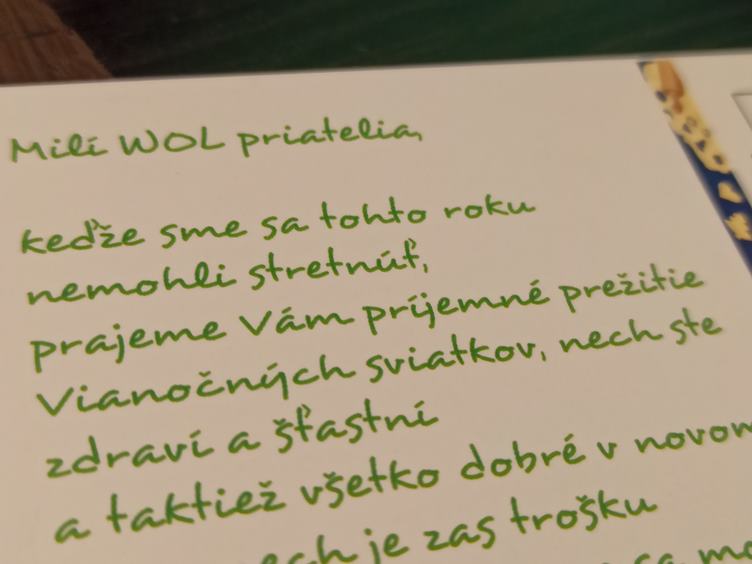 Milí WOL priatelia,
keďže sme sa tohto roku
nemohli stretnúť,
prajeme Vám príjemné prežitie
Vianočných sviatkov, nech ste
zdraví a šťastní
a taktiež všetko dobré v novom
je zas trošku
sa